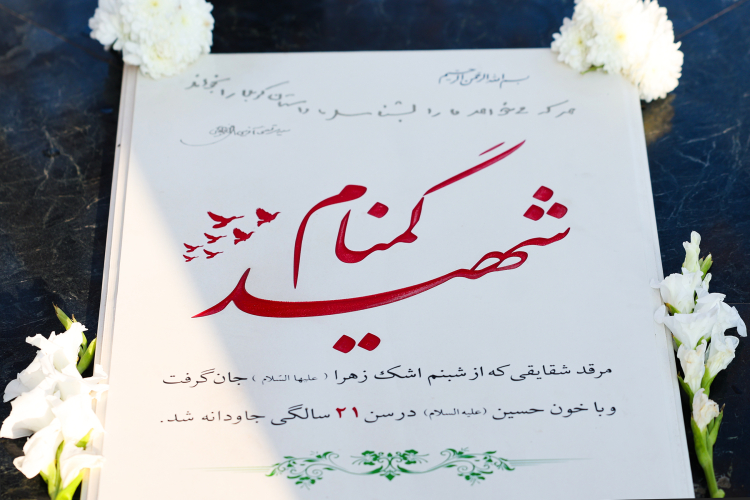 بسم الله الرحمن الرحیم
هر که می‌خواهد ما را بشناسد داستان کربلا را بخواند
سید مرتضی آوینی
شهید گمنام
مرقد شقایقی که از شبنم اشک زهرا (علیها السّلام) جان گرفت
و با خون حسین (علیه السلام) در سن ۲۱ سالگی جاودانه شد.